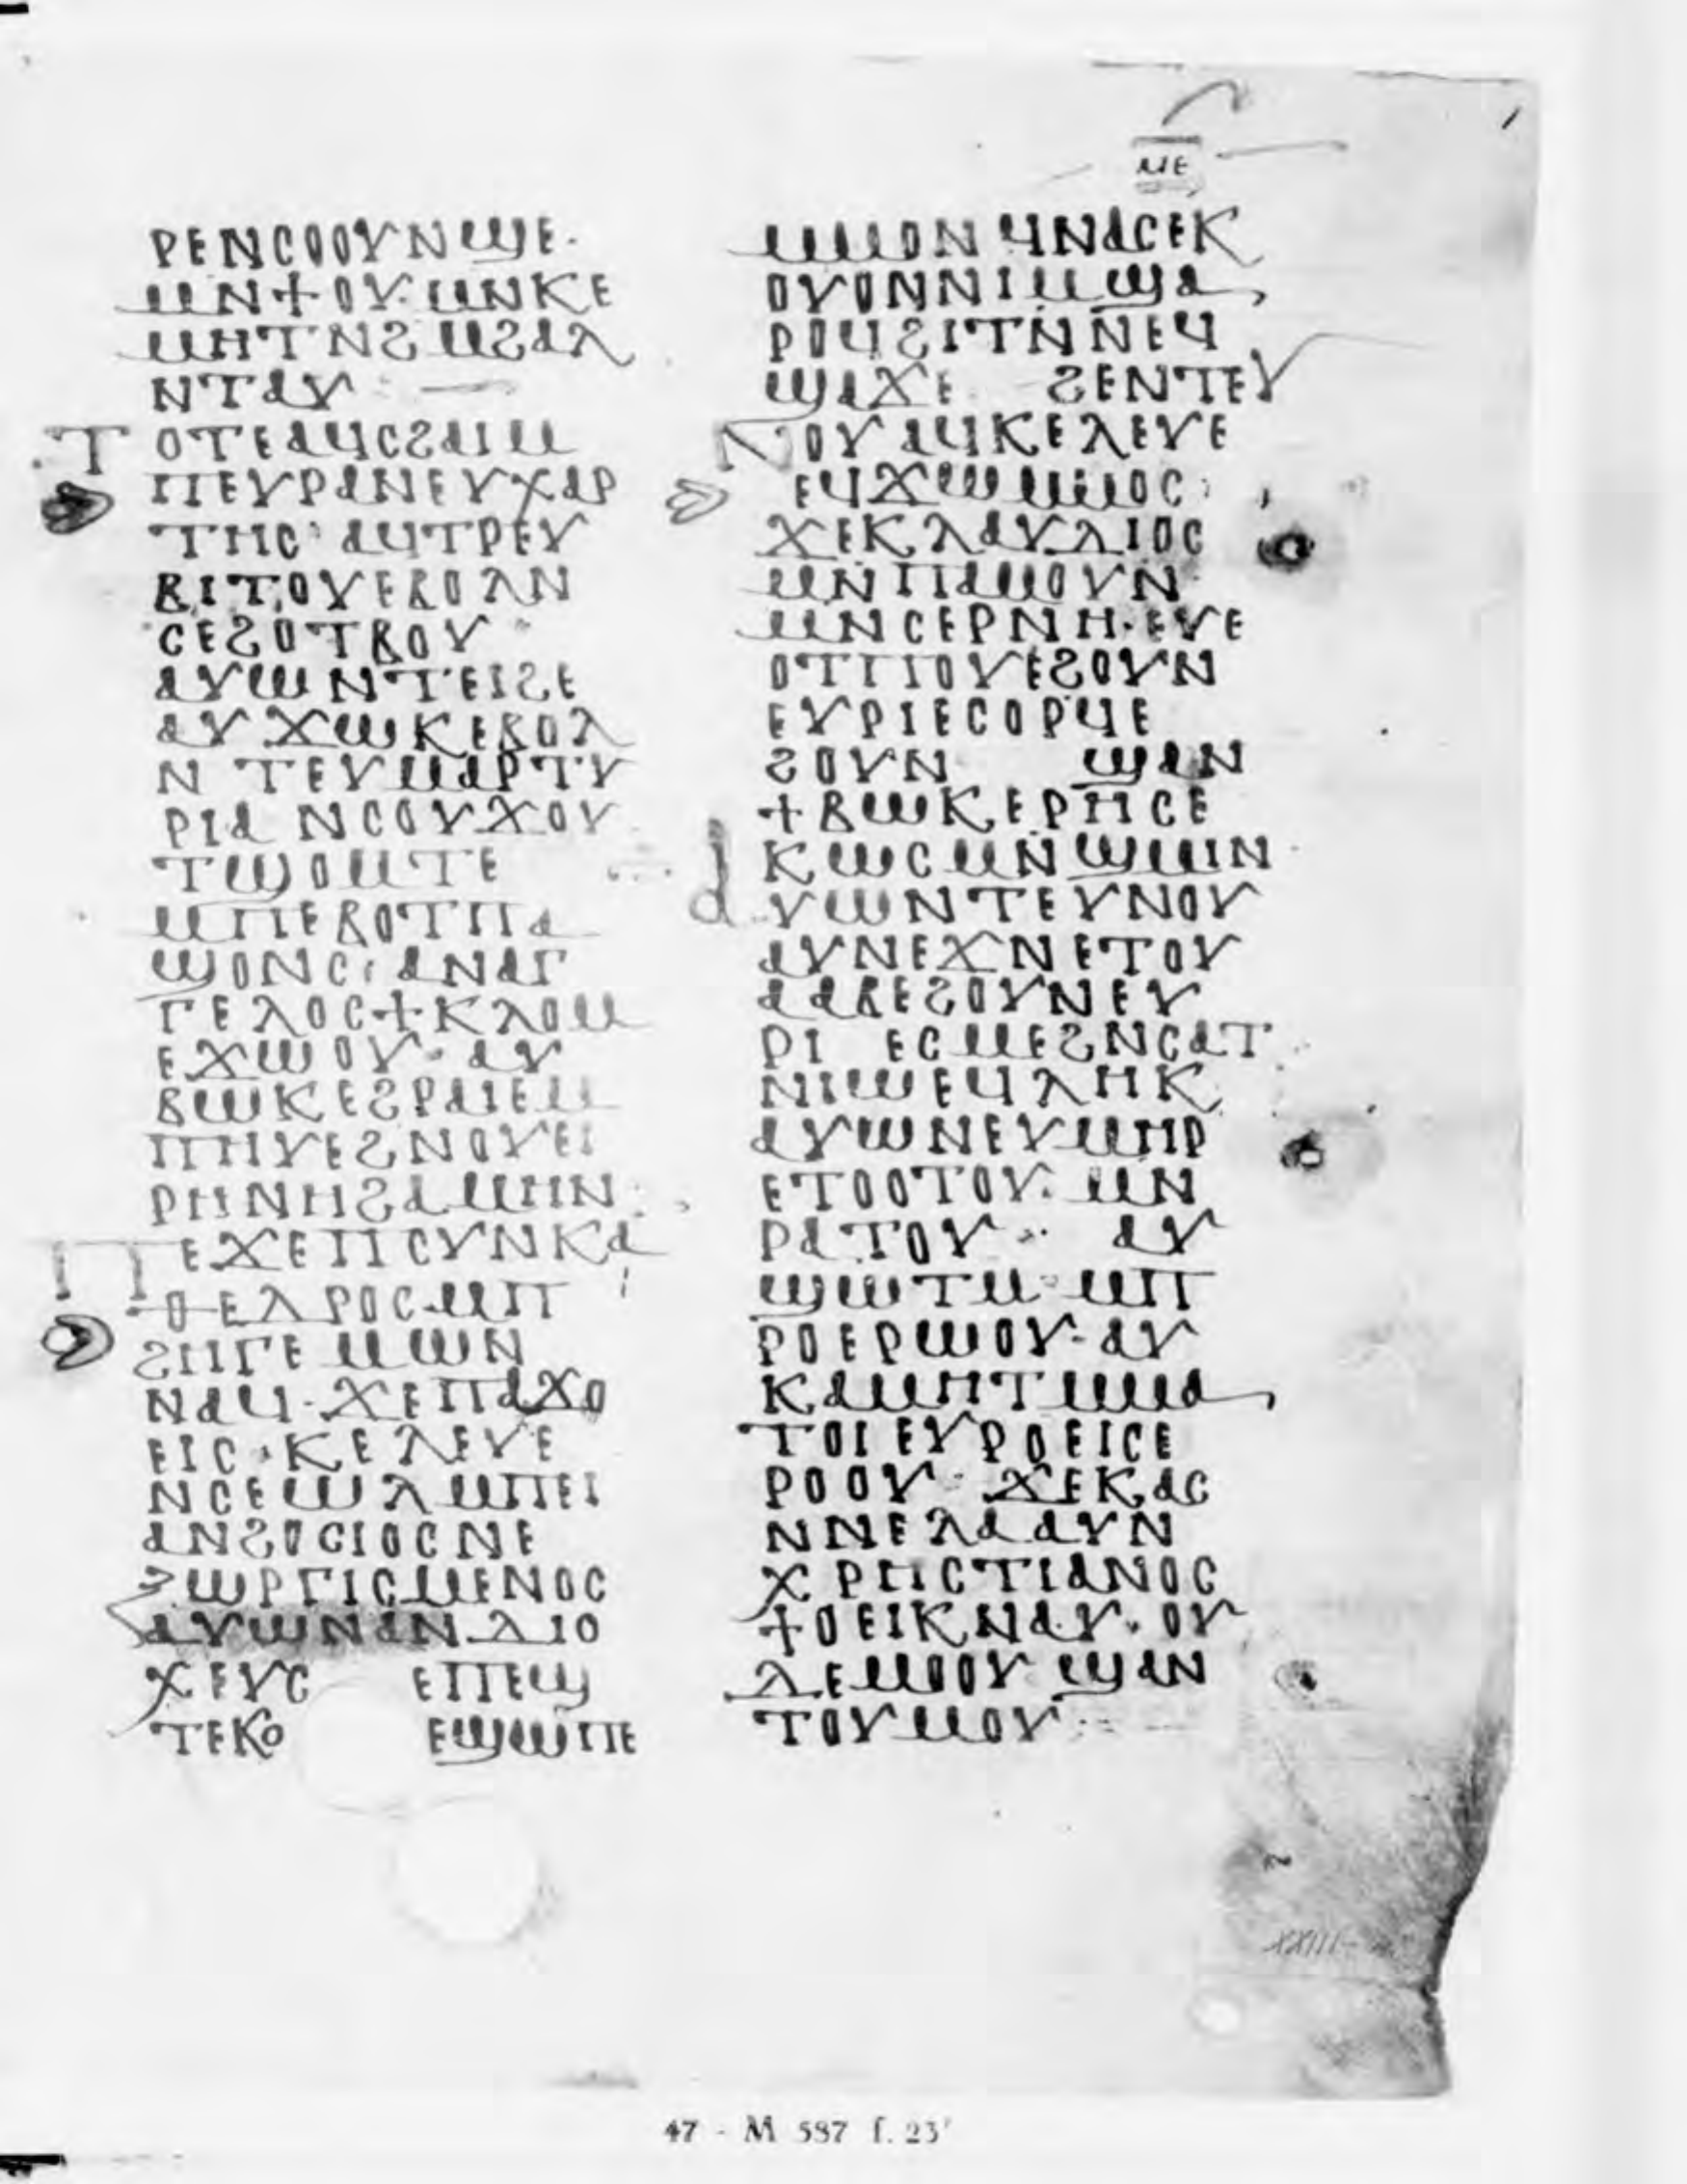 ⲙⲉ
ⲣⲉⲛⲥⲟⲟⲩⲛϣⲉ·
ⲙⲛϯⲟⲩ·ⲙⲛⲕⲉ
ⲙⲏⲧⲛϩⲙϩⲁⲗ
ⲛⲧⲁⲩ
ⲧⲟⲧⲉⲁϥⲥϩⲁⲓⲙ
ⲡⲉⲩⲣⲁⲛⲉⲩⲭⲁⲣ
ⲧⲏⲥ· ⲁϥⲧⲣⲉⲩ
ⲃⲓⲧⲟⲩⲉⲃⲟⲗⲛ
ⲥⲉϩⲟⲧⲃⲟⲩ
ⲁⲩⲱⲛⲧⲉⲓϩⲉ
ⲁⲩϫⲱⲕⲉⲃⲟⲗ
ⲛⲧⲉⲩⲙⲁⲣⲧⲩ
ⲣⲓⲁ ⲛⲥⲟⲩϫⲟⲩ
ⲧϣⲟⲙⲧⲉ
ⲙⲡⲉⲃⲟⲧⲡⲁ
ϣⲟⲛⲥ· ⲁⲛⲁⲅ
ⲅⲉⲗⲟⲥϯⲕⲗⲟⲙ
ⲉϫⲱⲟⲩ· ⲁⲩ
ⲃⲱⲕⲉϩⲣⲁⲓⲉⲙ
ⲡⲏⲩⲉϩⲛⲟⲩⲉⲓ
ⲣⲏⲛⲏϩⲁⲙⲏⲛ
ⲡⲉϫⲉⲡⲥⲩⲛⲕⲁ
ⲑⲉⲇⲣⲟⲥⲙⲡ
ϩⲏⲅⲉⲙⲱⲛ
ⲛⲁϥ·ϫⲉⲡⲁϫⲟ
ⲉⲓⲥ·ⲕⲉⲗⲉⲩⲉ
ⲛⲥⲉⲱⲗⲙⲡⲉⲓ
ⲁⲛϩⲟⲥⲓⲟⲥⲛⲉ
ⲝⲱⲣⲅⲓⲥⲙⲉⲛⲟⲥ
ⲁⲩⲱⲛⲁⲛⲇⲓⲟ
ⲭⲉⲩⲥ ⲉⲡⲉϣ
ⲧⲉⲕⲟ ⲉϣⲱⲡⲉ
ⲙⲙⲟⲛ ϥⲛⲁⲥⲉⲕ
ⲟⲩⲟⲛⲛⲓⲙϣⲁ
ⲣⲟϥϩⲓⲧⲛⲛⲉϥ
ϣⲁϫⲉ ϩⲉⲛⲧⲉⲩ
ⲛⲟⲩⲁϥⲕⲉⲗⲉⲩⲉ
ⲉϥϫⲱⲙⲙⲟⲥ·
ϫⲉⲕⲗⲁⲩⲇⲓⲟⲥ
ⲙⲛⲡⲁⲙⲟⲩⲛ
ⲙⲛⲥⲉⲣⲛⲏ·ⲉⲩⲉ
ⲟⲧⲡⲟⲩⲉϩⲟⲩⲛ
ⲉⲩⲣⲓⲉⲥⲟⲣϥⲉ
ϩⲟⲩⲛ ϣⲁⲛ
ϯⲃⲱⲕⲉⲣⲏⲥⲉ
ⲕⲱⲥⲙⲛϣⲙⲓⲛ
ⲁⲩⲱⲛⲧⲉⲩⲛⲟⲩ
ⲁⲩⲛⲉϫⲛⲉⲧⲟⲩ
ⲁⲁⲃⲉϩⲟⲩⲛⲉⲩ
ⲣⲓ ⲉⲥⲙⲉϩⲛⲥⲁⲧ
ⲛⲓⲱⲉϥⲗⲏⲕ
ⲁⲩⲱⲛⲉⲩⲙⲏⲣ
ⲉⲧⲟⲟⲧⲟⲩ· ⲙⲛ
ⲣⲁⲧⲟⲩ· ⲁⲩ
ϣⲱⲧⲙ ⲙⲡ
ⲣⲟⲉⲣⲱⲟⲩ·ⲁⲩ
ⲕⲁⲙⲏⲧⲙⲙⲁ
ⲧⲟⲓⲉⲩⲣⲟⲉⲓⲥⲉ
ⲣⲟⲟⲩ· ϫⲉⲕⲁⲥ
ⲛⲛⲉⲗⲁⲁⲩⲛ
ⲭⲣⲏⲥⲧⲓⲁⲛⲟⲥ
ϯⲟⲉⲓⲕⲛⲁⲩ· ⲟⲩ
ⲇⲉⲙⲟⲟⲩ ϣⲁⲛ
ⲧⲟⲩⲙⲟⲩ
47 - M 587 f. 23ʳ